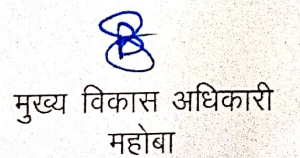 मुख्य विकास अधिकारी
महोबा